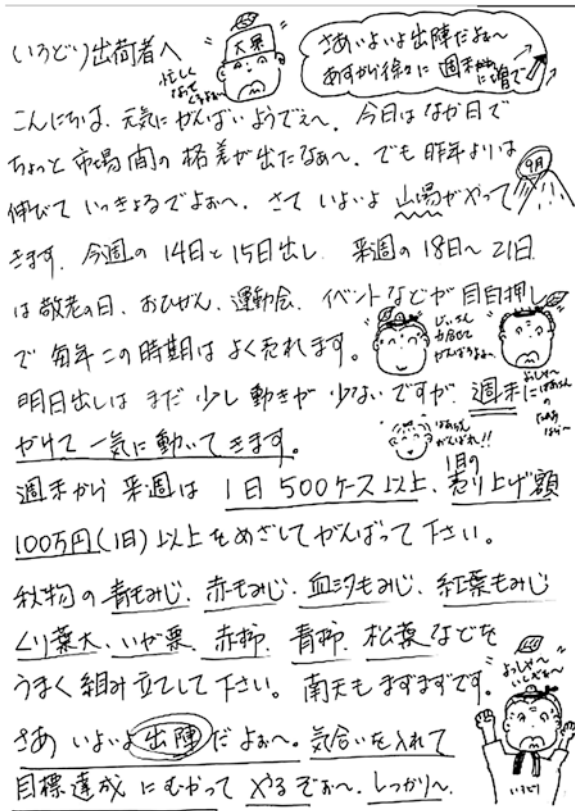 いろどり出荷者へ
大黒
忙しく
なって
くるよぉ〜
さあいよいよ出陣だよぉ〜
あすから徐々に週末
に増で
こんにちは、元気にがんばいようでぇ〜、今日はなか日で
ちょっと市場間の格差が出たなぁ〜、でも昨年よりは
伸びていっきょるでよぉ〜、さていよいよ山場がやって
9月
きます、今週の14日と15日出し、来週の18日〜21日
は敬老の日、おひがん、運動会、イベントなどが目白押し
で毎年この時期はよく売れます。
じいさん
力合せて
がんばろうよぉ、
明日出しはまだ少し動きが少ないですが、週末に
よおしゃ〜
ばあさん
の
かけて一気に動いてきます。
ばあさん
がんばれ!!
週末から来週は1日500ケース以上、1日の売り上げ額
100万円(1日)以上をめざしてがんばって下さい。
秋物の青もみじ、赤もみじ、血汐もみじ、紅葉もみじ
くり葉大、いが栗、赤柿、青柿、松葉などを
うまく組み立てして下さい。南天もまずまずです。
よっしゃ〜
いくでぇ〜
さあいよいよ出陣だよぉ〜。気合いを入れて
目標達成にむかってやるぞぉ〜、しっかり〜、
いろどり